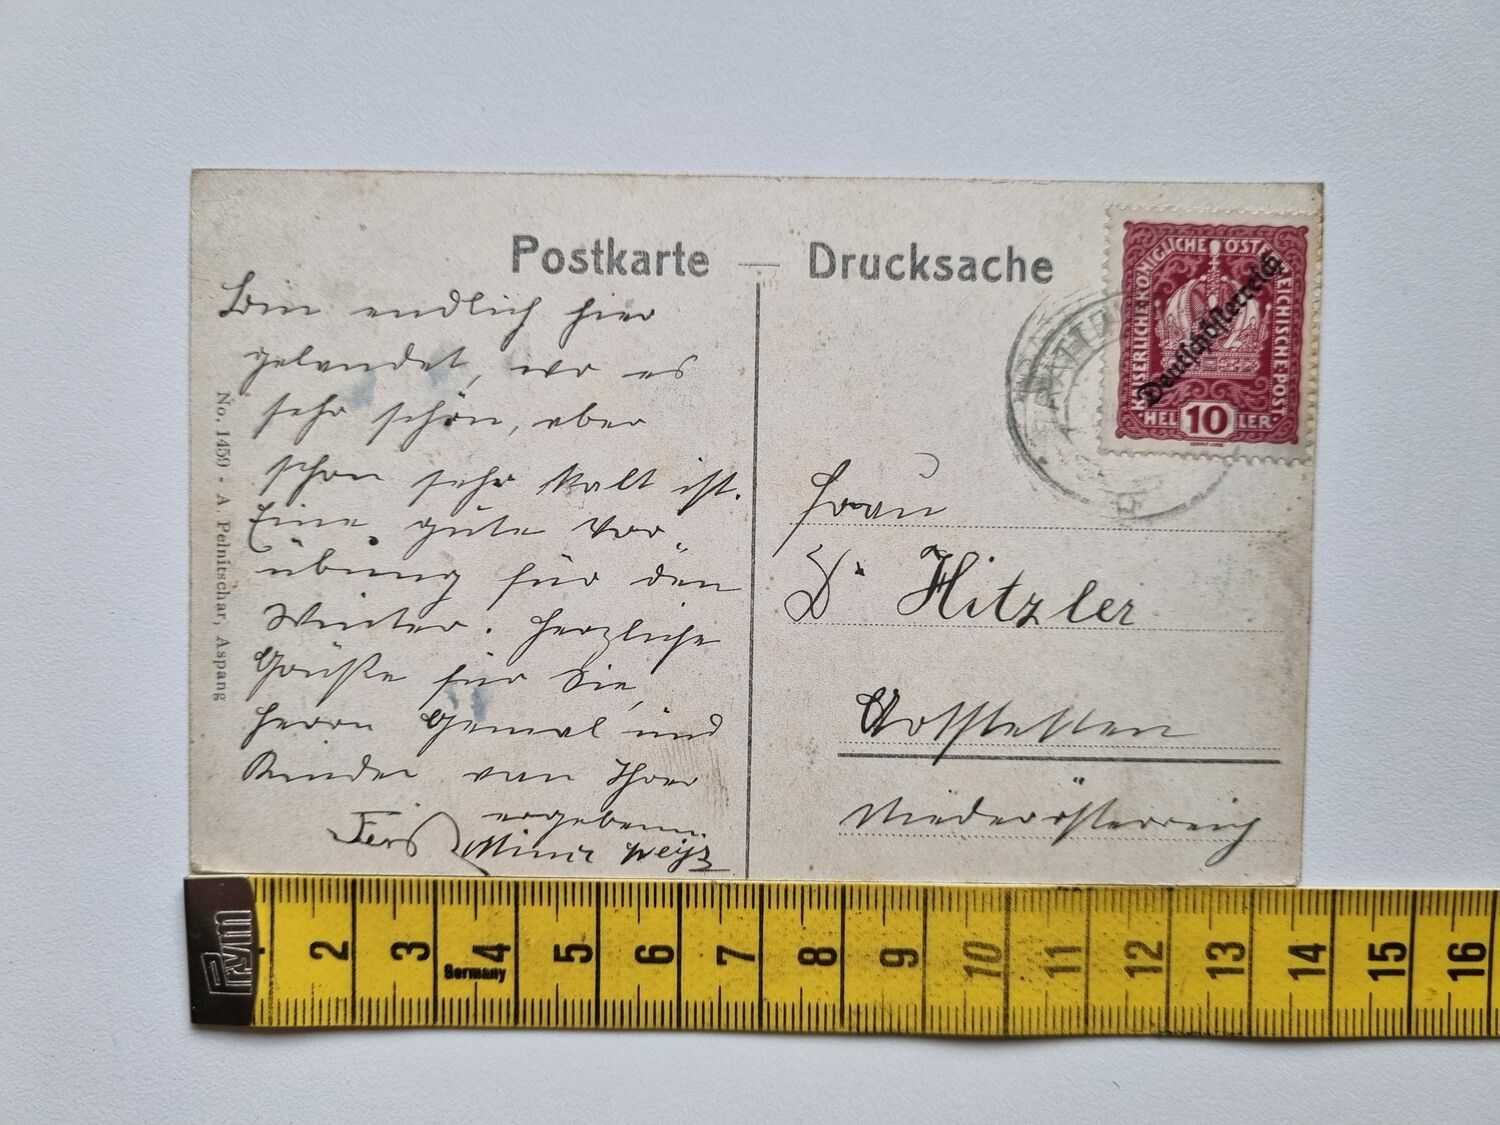 Postkarte — Drucksache
Bin endlich hier
gelandet, wo es
sehr schön, aber
schon sehr kalt ist.
Eine gute Vor
übung für den
Winter. Herzliche
Grüße für Sie,
Herrn Gemal und
Kinder von Ihrer
ergebenen
Minni Weiß
No. 1459 · A Pelnitschar, Aspang
KAISERLICHE KÖNIGLICHE ÖSTERREICHISCHE POST
Deutschösterreich
HEL 10 LER
Frau
Dr Hitzler
Hofstetten
Niederösterreich
Prym
2 3 4 5 6 7 8 9 10 11 12 13 14 15 16
Germany